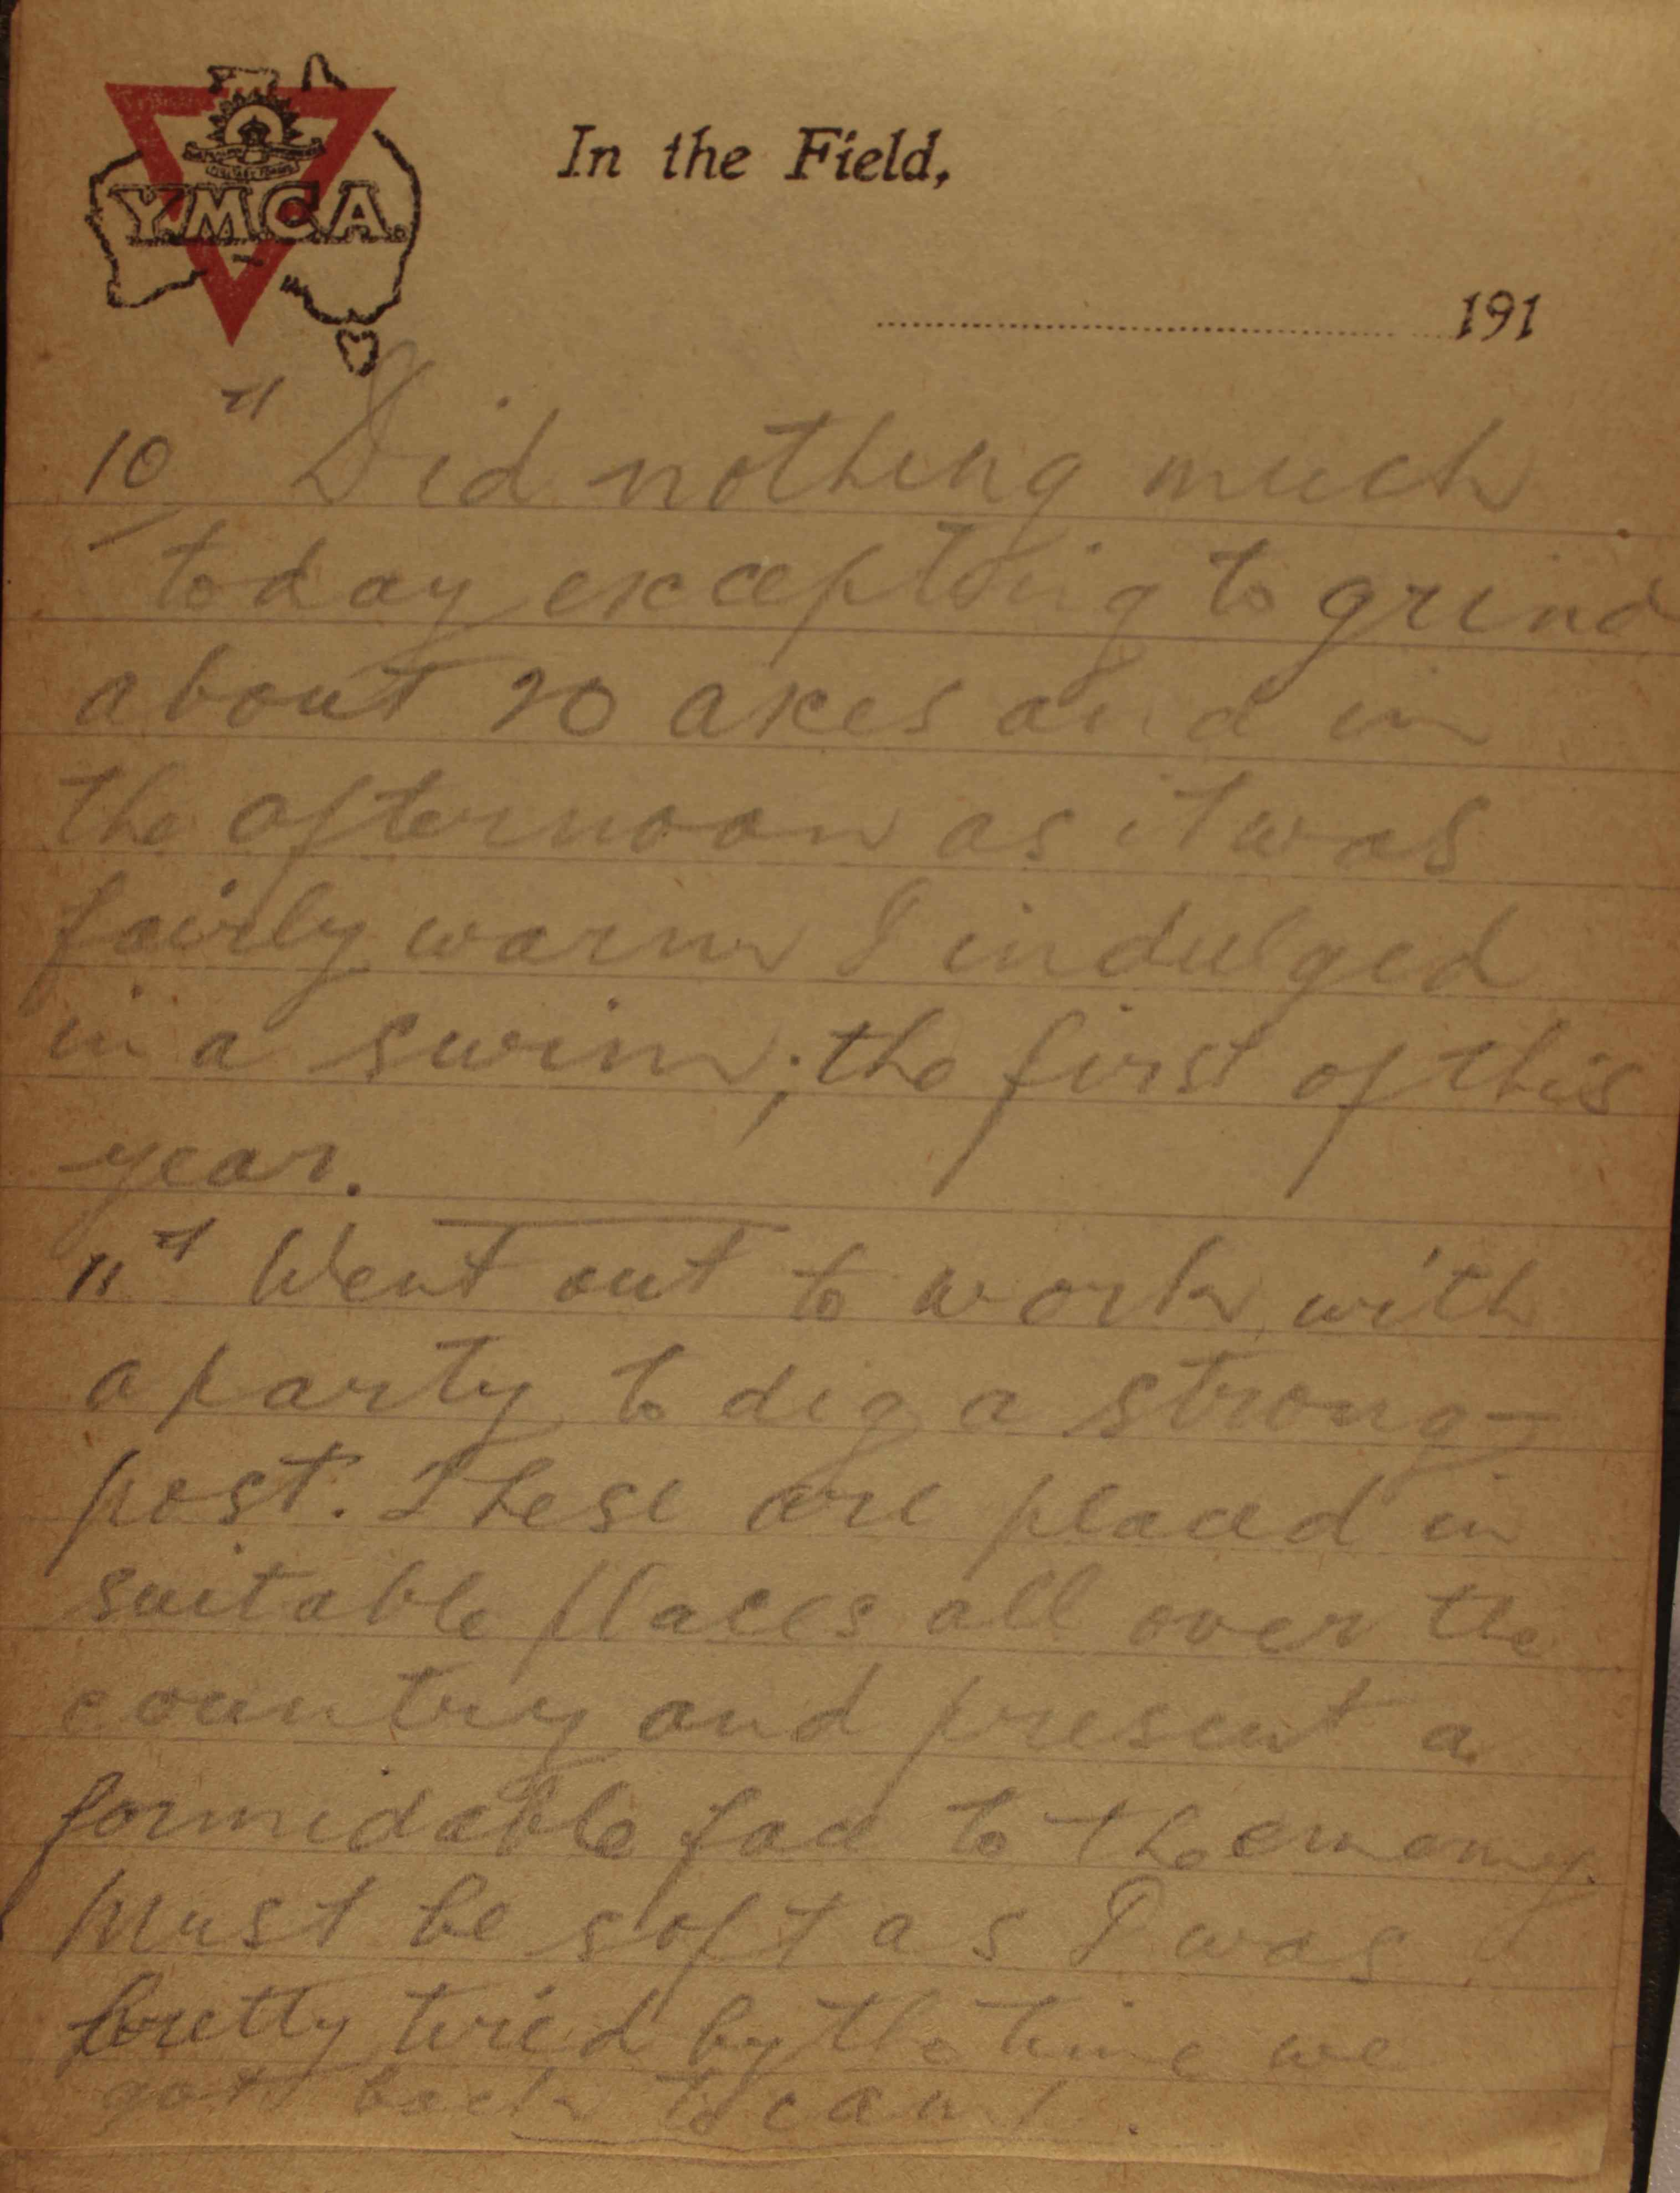 Y.M.C.A.
In the Field,
191
10th Did nothing much
today excepting to grind
about 20 axes and in
the afternoon as it was
fairly warm I indulged
in a swim; the first of this
year.
11th Went out to work with
a party to dig a strong-
post. These are placed in
suitable places all over the
country and present a
formidable face to the enemy.
Must be soft as I was
pretty tired by the time we
got back to camp.